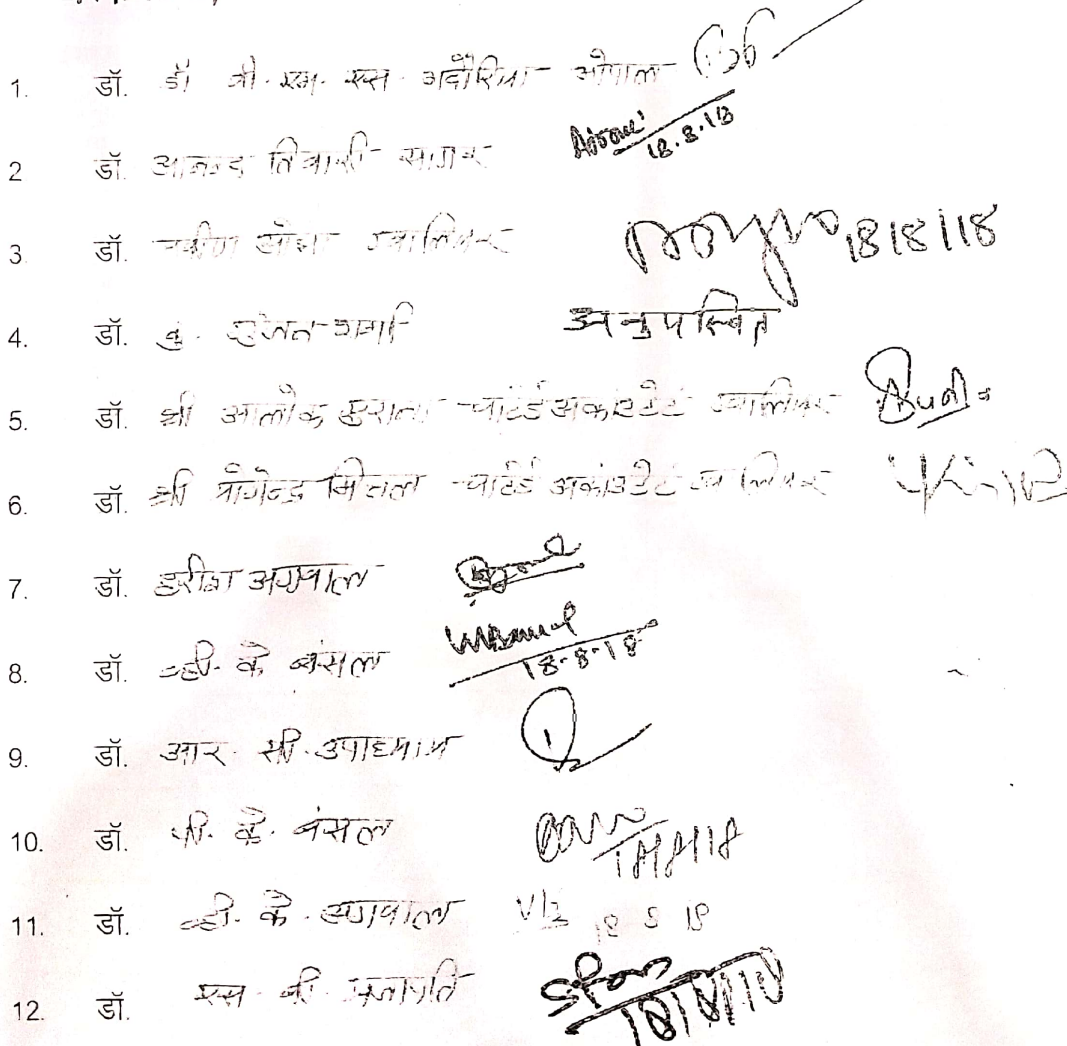 1. डॉ. डॉ बी. एम. एस. भदौरिया भोपाल
2 डॉ. आनन्द तिवारी सागर 18.8.18
3. डॉ. ओझा ग्वालियर 18/8/18
4. डॉ. कु. शर्मा अनुपस्थित
5. डॉ. श्री आलोक चार्टर्ड अकांउटेंट ग्वालियर
6. डॉ. श्री योगेन्द्र मित्तल चार्टर्ड अकांउटेंट ग्वालियर
7. डॉ. हरीश अग्रवाल
8. डॉ. व्ही. के बंसल 18-8-18
9. डॉ. आर. सी. उपाध्याय
10. डॉ. पी. के. बंसल 18/8/18
11. डॉ. व्ही. के. अग्रवाल 18 8 18
12. डॉ. एस. बी. प्रजापति